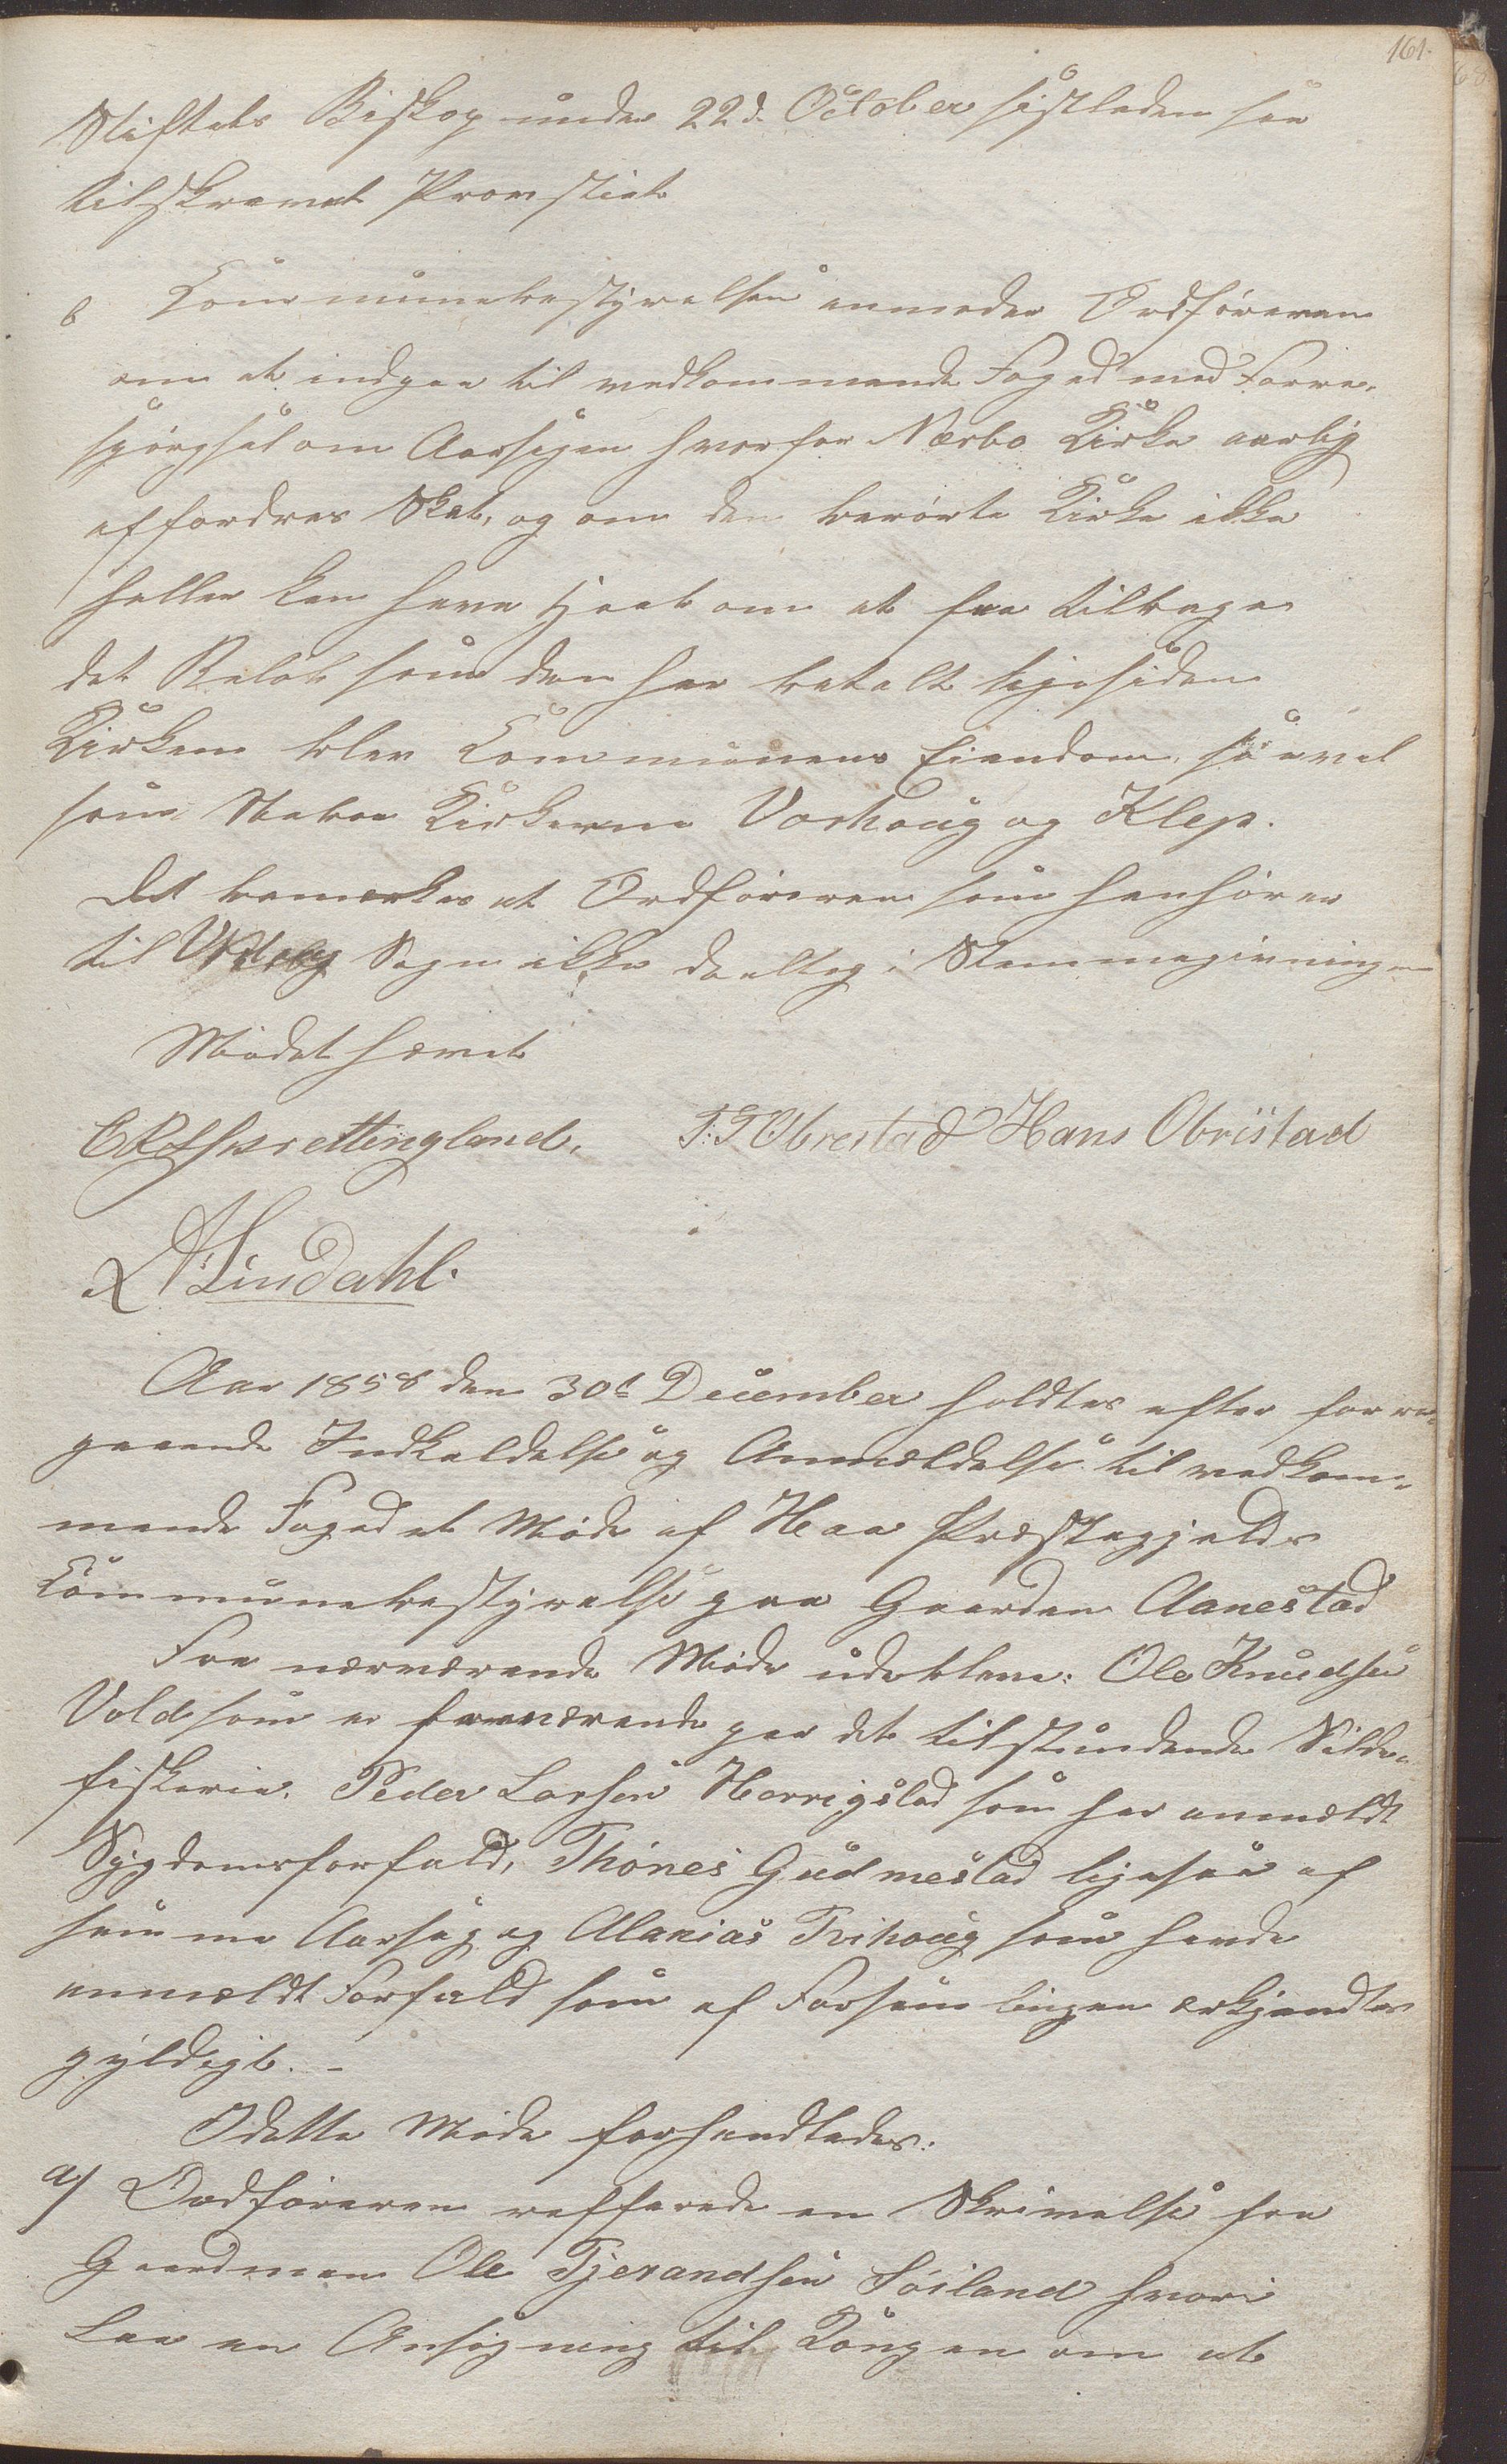 161.
Stiftets Biskop under 22d. October sistleden har
tilskrevet Provstiet
b Communebestyrelsen anmoder Ordføreren
om at indgaa til vedkommende Foged med Fore-
spørgsel om Aarsagen hvorfor Nærbø Kirke aarlig
affordres Skat, og om den berørte Kirke ikke
heller kan have Haab om at faa tilbage
det Beløb som den har betalt ligesiden
Kirken blev Communens Eiendom, saavel
som Kirkerne Varhoug og Klep.
Det bemærkes at Ordføreren som henhører
til Sogn ikke deeltog i Stemmegivningen
Mødet hævet
T: T Obrestad Hans Obristad
Lindahl.
Aar 1858 den 30te December holdtes efter fore-
gaaende Indkaldelse og Anmeldelse til vedkom-
mende Foged et Møde af Haa Præstegjelds
Communebestyrelse paa Gaarden Aanestad
Fra nærværende Møde udebleve: Ole Knudsen
Vold som er fraværende paa det tilstundende Silde-
fiskerie. Peder Larsen Horrigstad som har anmeldt
Sygdomsforfald, Thønes Gudmestad ligesaa af
samme Aarsag og Alanias Tvihoug som havde
anmeldt Forfald som af Forsamlingen erkjendtes
gyldigt. -
I dette Møde forhandledes:
a) Ordføreren refferede en Skrivelse fra
Gaardman Ole Tjerandsen Søiland hvori
laa en Ansøgning til Kongen om at